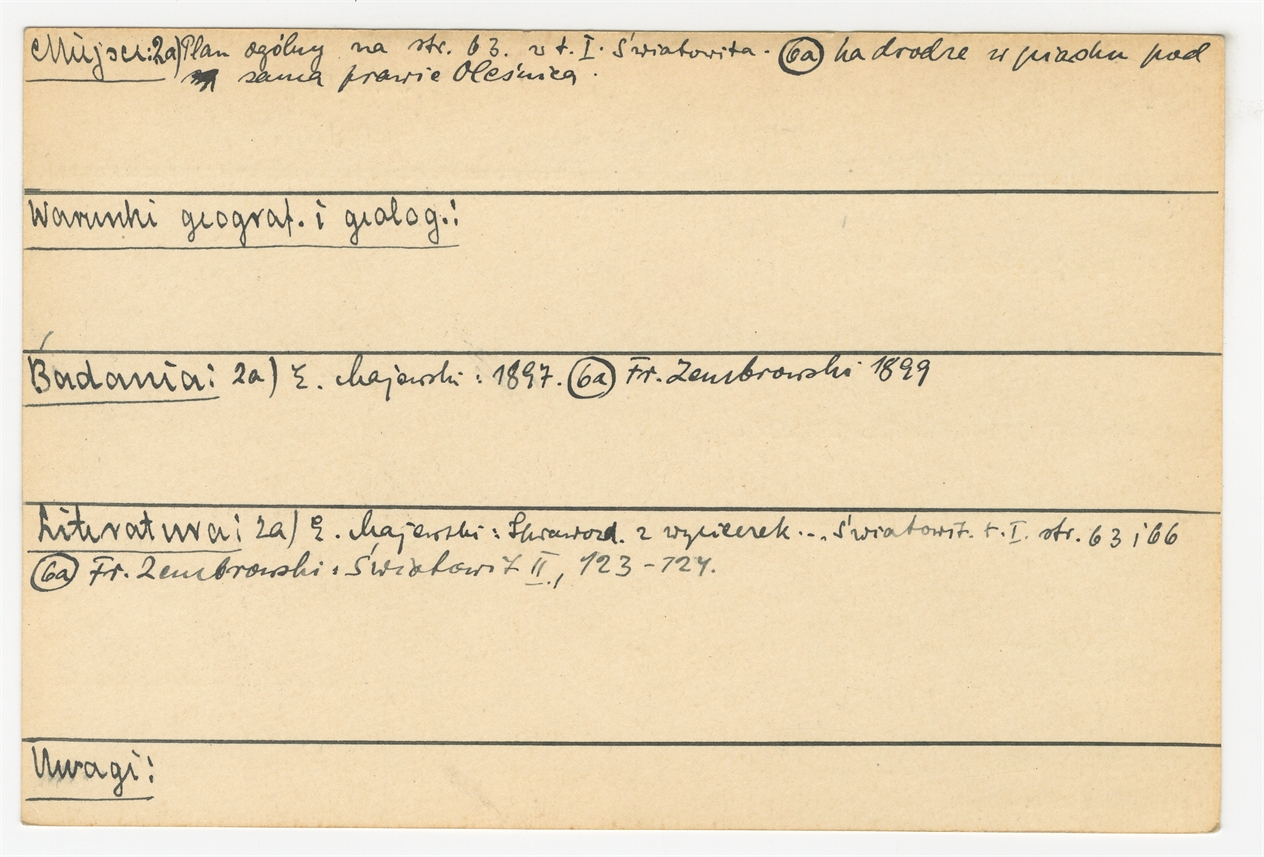 Miejsce: 2a) Plan ogólny na str. 63. w t. I. Światowita. (6a) na drodze w piasku pod
samą prawie Oleśnicą.
Warunki geograf. i geolog.:
Badania: 2a) E. Majewski: 1897. (6a) Fr. Zembrowski 1899
Literatura: 2a) E. Majewski: Sprawozd. z wycieczek... Światowit. t. I. str. 63 i 66
(6a) Fr. Zembrowski: Światowit II, 123-124.
Uwagi: